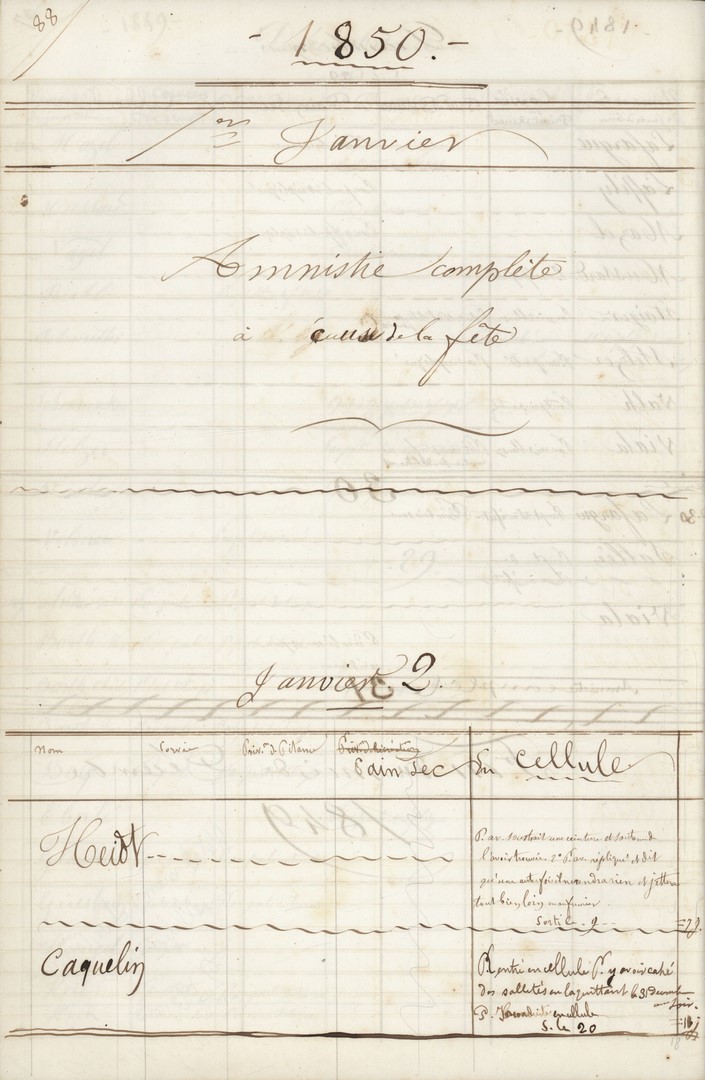 88
- 1850. -
1er Janvier
Amnistie complète
à cause de la fête
Janvier 2.
Nom Corvée Priv.n de Pitance Pain sec En cellule
Heidt
P. av. soustrait une ceinture et soutenu
l'avoir trouvée. 2° P. av. répliqué et dit
qu'une autre fois il ne rendra rien et jettera
tout bien loin au fumier
Sorti le 9 = 7 j.
Caquelin
Rentré en cellule P. y avoir caché
des saletés en la quittant le 31 Décemb
au soir.
P. en cellule
S. le 20